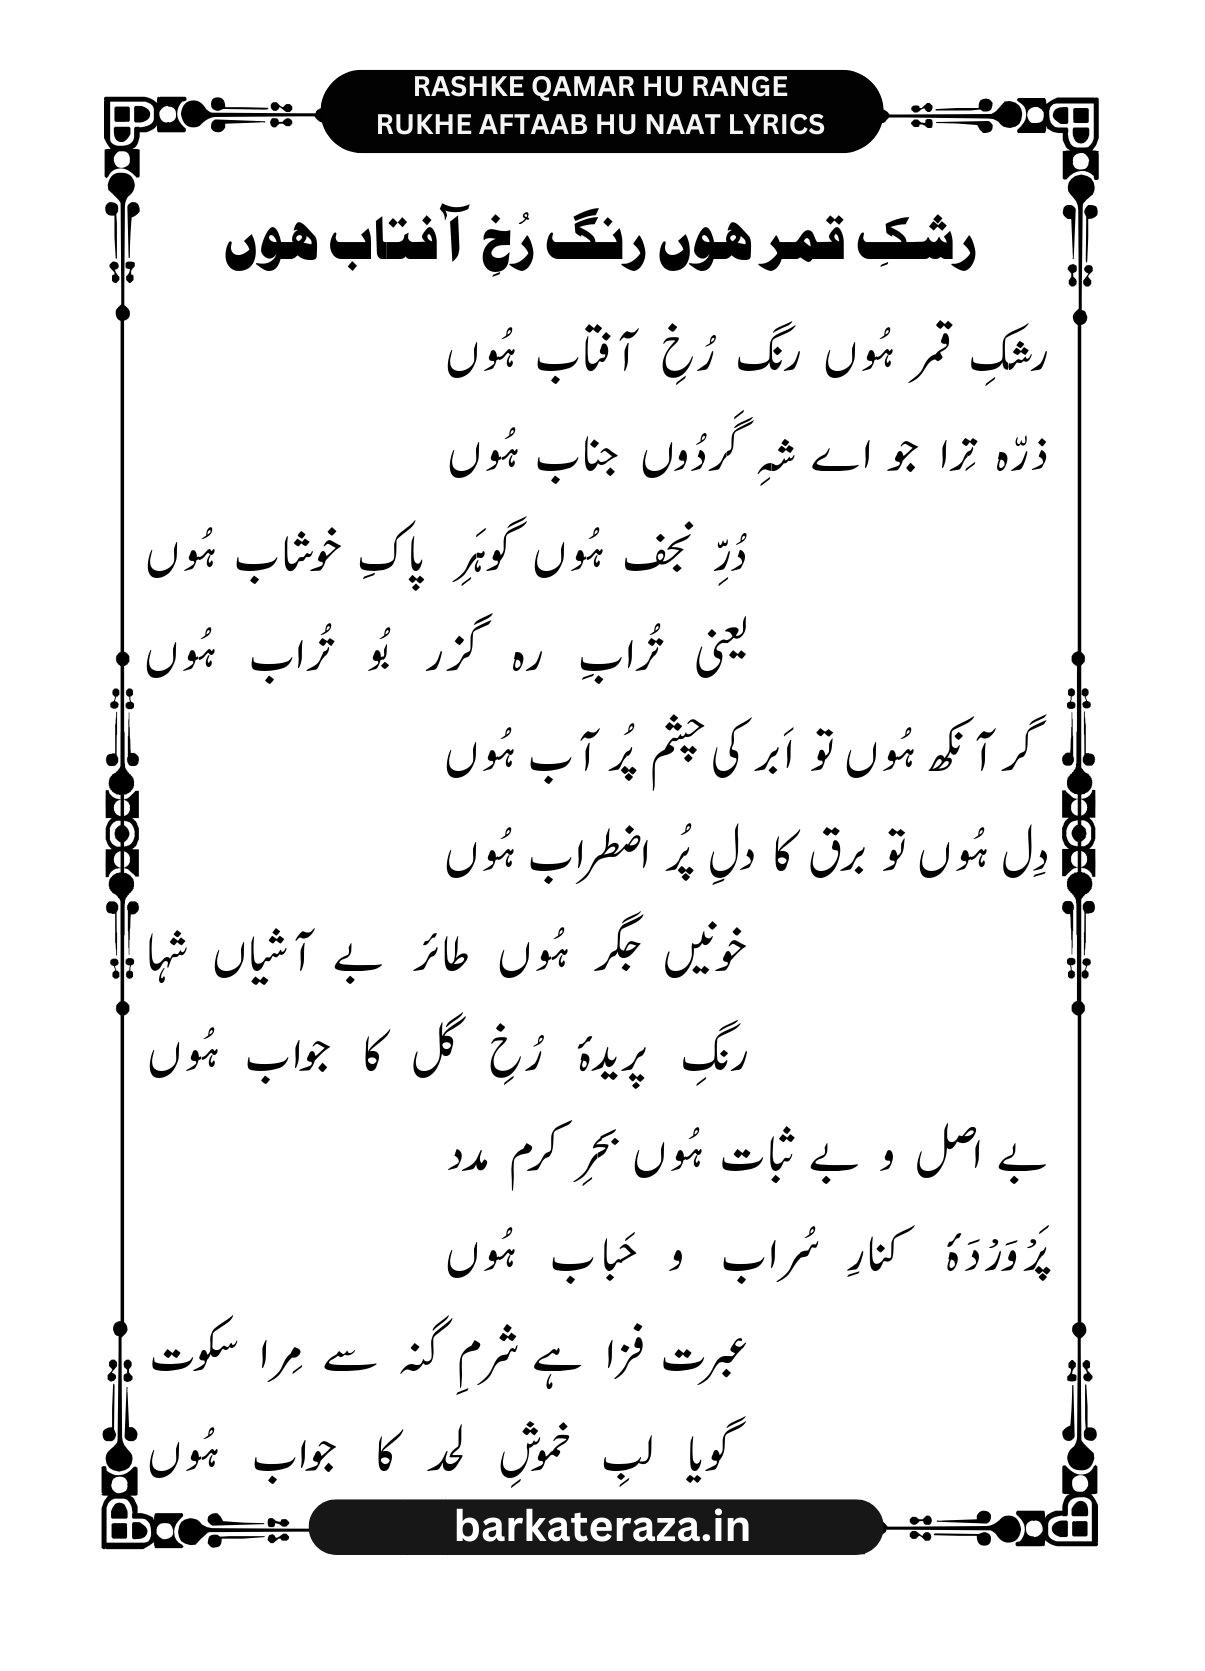 RASHKE QAMAR HU RANGE
RUKHE AFTAAB HU NAAT LYRICS
رشکِ قمر ہوں رنگ رُخِ آفتاب ہوں
رشکِ قمر ہُوں رنگ رُخِ آفتاب ہُوں
ذرّہ تِرا جو اے شہِ گَردُوں جناب ہُوں
دُرِّ نجف ہُوں گوہَرِ پاکِ خوشاب ہُوں
یعنی تُرابِ رہ گزر بُو تُراب ہُوں
گر آنکھ ہُوں تو اَبر کی چشم پُر آب ہُوں
دِل ہُوں تو برق کا دلِ پُر اضطراب ہُوں
خونیں جگر ہُوں طائر بے آشیاں شہا
رنگِ پریدۂ رُخِ گل کا جواب ہُوں
بے اصل و بے ثبات ہُوں بحرِ کرم مدد
پَرْوَرْدَۂ کنارِ سُراب و حَباب ہُوں
عبرت فزا ہے شرمِ گنہ سے مِرا سکوت
گویا لبِ خموشِ لحد کا جواب ہُوں
barkateraza.in